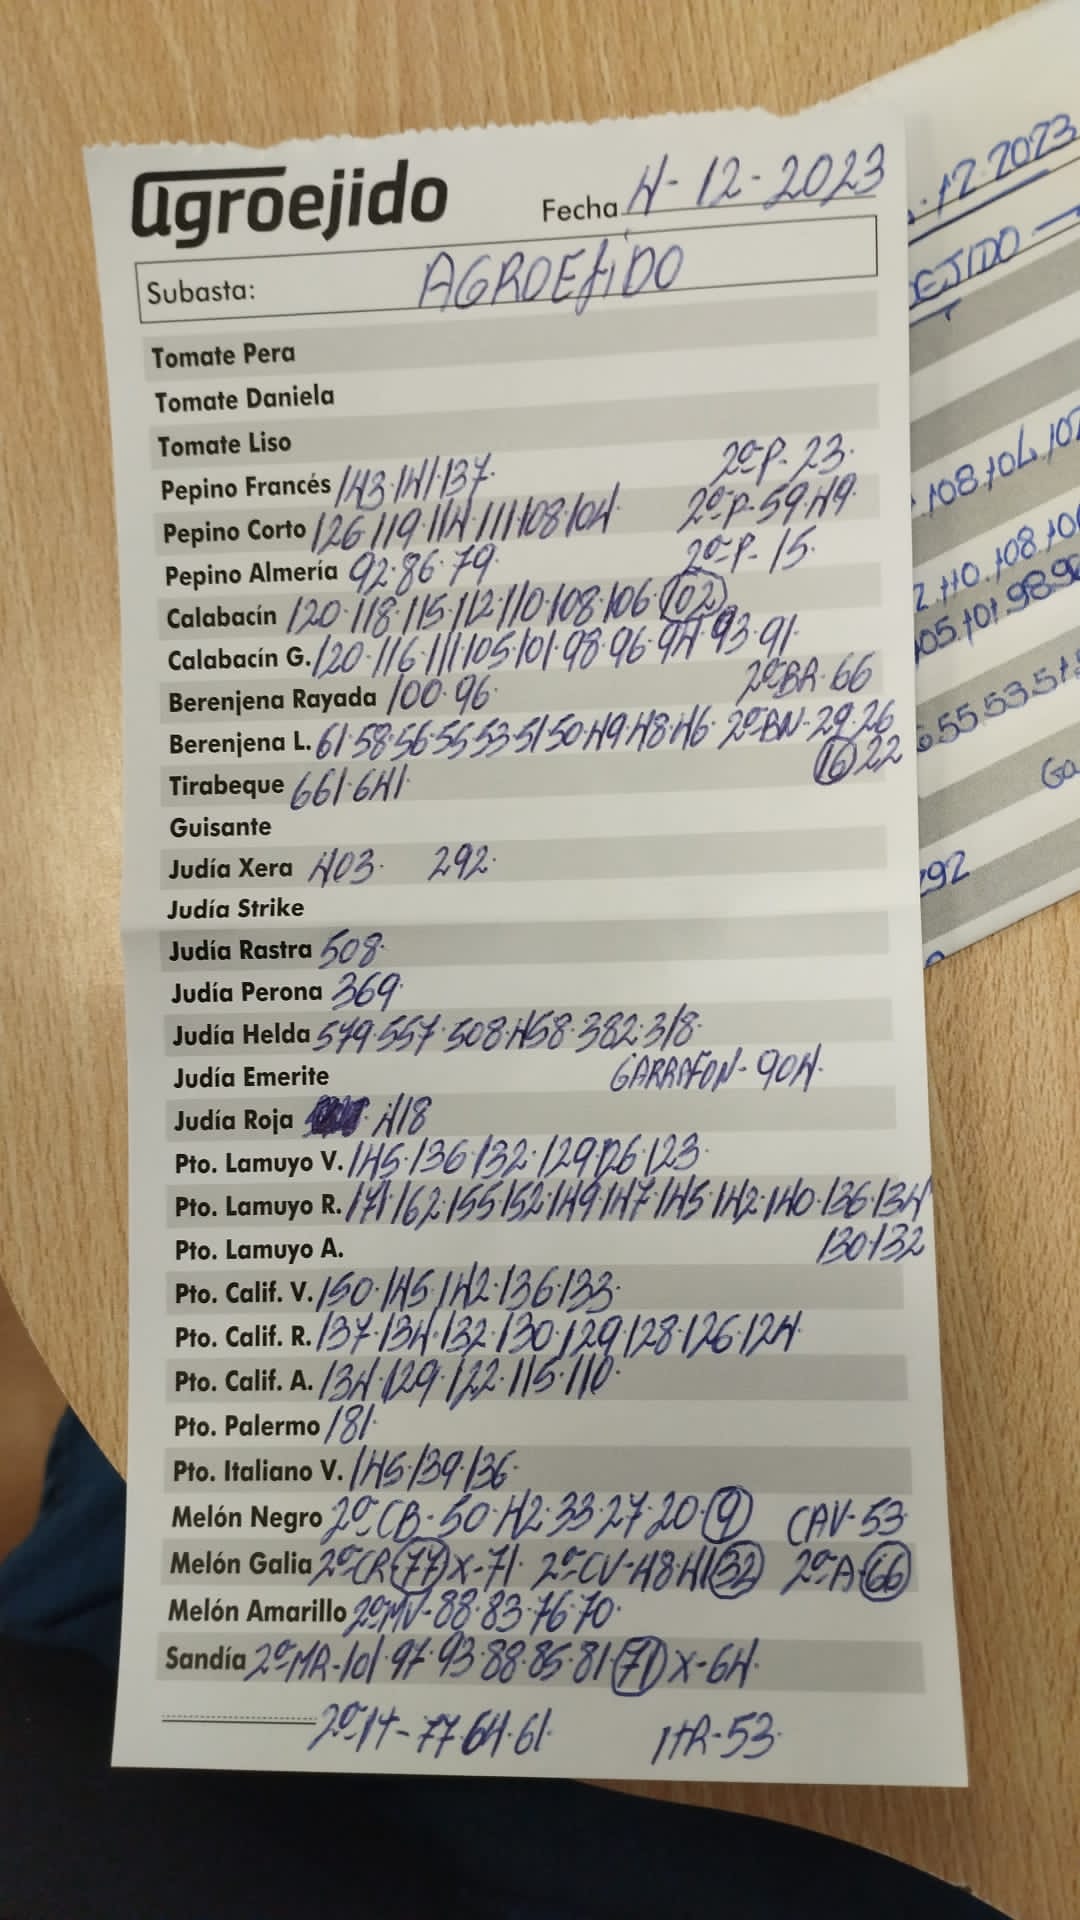 agroejido Fecha 4-12-2023
Subasta: AGROEJIDO
Tomate Pera
Tomate Daniela
Tomate Liso
Pepino Francés 143·141·137· 2ªP-23·
Pepino Corto 126·119·114·111·108·104 2ªP-59·49
Pepino Almería 92·86·79· 2ªP-15·
Calabacín 120·118·115·112·110·108·106·102
Calabacín G. 120·116·111·105·101·98·96·94·93·91·
Berenjena Rayada 100·96· 2ªBR·66
Berenjena L. 61·58·56·55·53·51·50·49·48·46· 2ªBN-29·26
16 22
Tirabeque 661·641·
Guisante
Judía Xera 403· 292·
Judía Strike
Judía Rastra 508·
Judía Perona 369·
Judía Helda 579·557·508·458·382·318·
Judía Emerite GARRAFON-904·
Judía Roja 418
Pto. Lamuyo V. 145·136·132·129·126·123·
Pto. Lamuyo R. 171·162·155·152·149·147·145·142·140·136·134
Pto. Lamuyo A. 130·132
Pto. Calif. V. 150·145·142·136·133·
Pto. Calif. R. 137·134·132·130·129·128·126·124·
Pto. Calif. A. 134·129·122·115·110·
Pto. Palermo 181·
Pto. Italiano V. 145·139·136·
Melón Negro 2ªCB-50·42·33·27·20·9 CAV-53
Melón Galia 2ªCR 77 X-71· 2ªCV-48·41 32 2ªA-66
Melón Amarillo 2ªMV-88·83·76·70·
Sandía 2ªMR-101·97·93·88·85·81·71 X-64·
2ªIt-77·64·61· ItR-53·
·12·2023
EJIDO
108·104·102
2·110·108·10
105·101·98·9
55·53·51·5
Ga
292